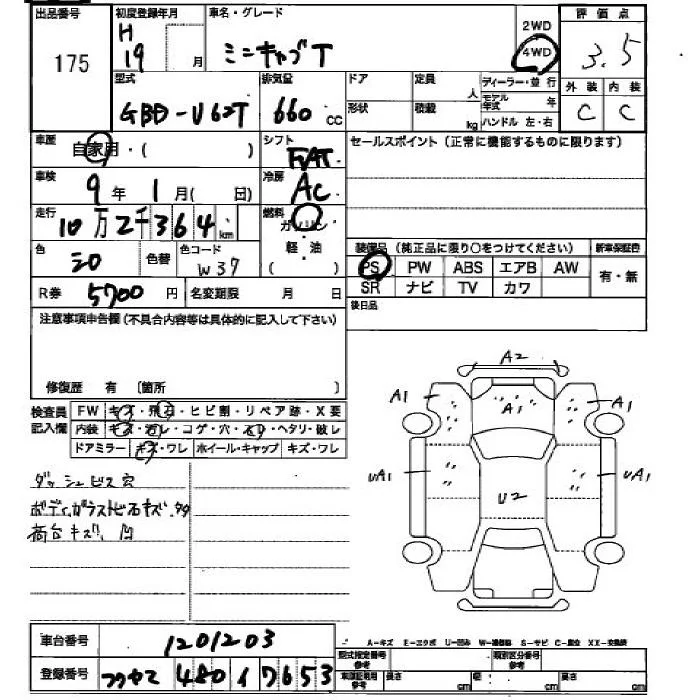 出品番号 初度登録年月 車名・グレード 2WD 評価点
175 H 19 月 ミニキャブT 4WD 3.5
型式 排気量 ドア 定員 人 ディーラー・並行 外装 内装
GBD-U62T 660 CC 形状 積載 kg モデル年式 年 C C
ハンドル 左・右
車歴 自家用・( ) シフト FAT セールスポイント(正常に機能するものに限ります)
車検 9年 1月( 日) 冷房 AC
走行 10万2千364km 燃料 ガソリン
色 シロ 色替 色コード W37 軽油 ( )
装備品(純正品に限り○をつけてください) 新車保証書
PS PW ABS エアB AW 有・無
R券 5700円 名変期限 月 日 SR ナビ TV カワ
注意事項申告欄(不具合内容等は具体的に記入して下さい) 後日品
修復歴 有 〔箇所 〕
検査員記入欄 FW キズ・飛石・ヒビ割・リペア跡・X要
内装 キズ・汚レ・コゲ・穴・スリ・ヘタリ・破レ
ドアミラー キズ・ワレ ホイール・キャップ キズ・ワレ
ダッシュビス穴
ボディ,ガラストビ石キズ,タタ
荷台キズ,凹
A2
A1 A1 A1
UA1 U2 UA1
A-キズ E-エクボ U-凹み W-補修跡 S-サビ C-腐食 XX-交換済
車台番号 1201203 型式指定番号 参考 類別区分番号 参考
登録番号 フクヤマ 480 イ 7653 車庫証明用 参考 長さ cm 幅 cm 高さ cm